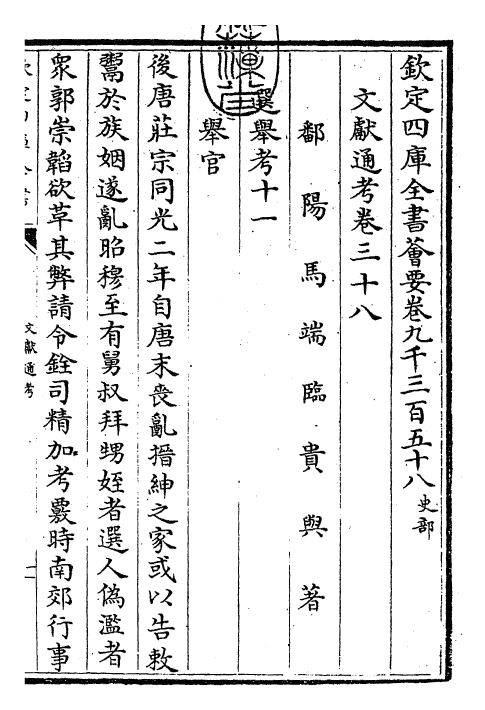 欽定四庫全書薈要卷九千三百五十八 史部
文獻通考卷三十八
鄱陽馬端臨貴與著
選舉考十一
舉官
後唐莊宗同光二年自唐末喪亂搢紳之家或以告敕
鬻於族姻遂亂昭穆至有舅叔拜甥姪者選人偽濫者
衆郭崇韜欲草其弊請令銓司精加考覈時南郊行事
文獻通考